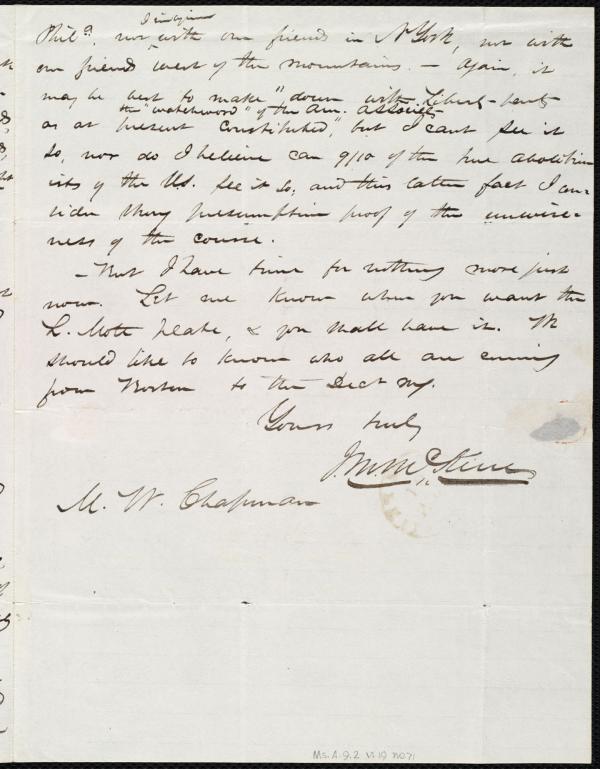 I imagine
Phila, nor with our friends in N York, nor with
our friends west of the mountains. — Again, it
may be best to make "down with Liberty-party
the "watchword" of the Am. Association
as at present constituted," but I cant see it
so, nor do I believe can 9/10 of the true abolition-
ists of the U.S. see it so; and this latter fact I con-
sider strong presumptive proof of the unwise-
ness of the course.
—But I have time for nothing more just
now. Let me know when you want the
L. Mott plate, & you shall have it. We
should like to know who all are coming
from Boston to the Dect mg.
Yours truly
J.M. McKim
M. W. Chapman
Ms.A.9.2 v.19 no.71